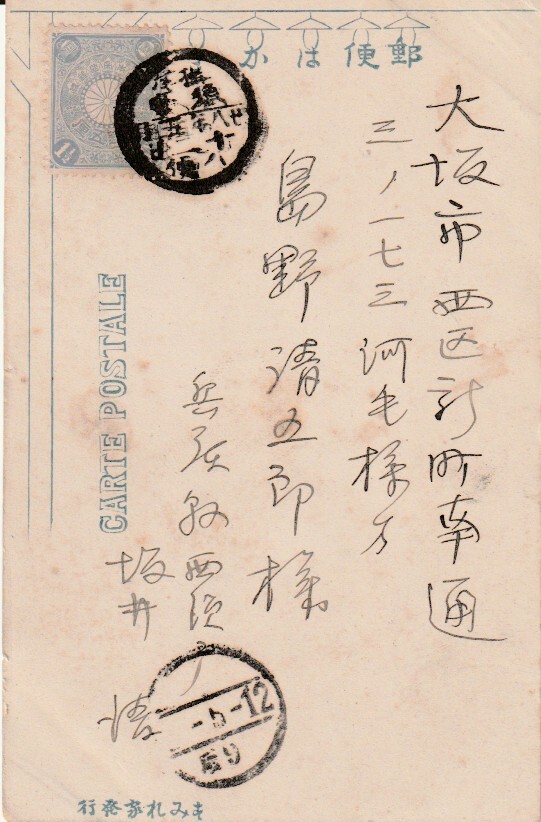 郵便はがき
大坂市西区新町南通
三ノ一七三河毛様方
島野清五郎様
兵庫
西須
坂井
CARTE POSTALE
1½
-5-12
すみれ家発行